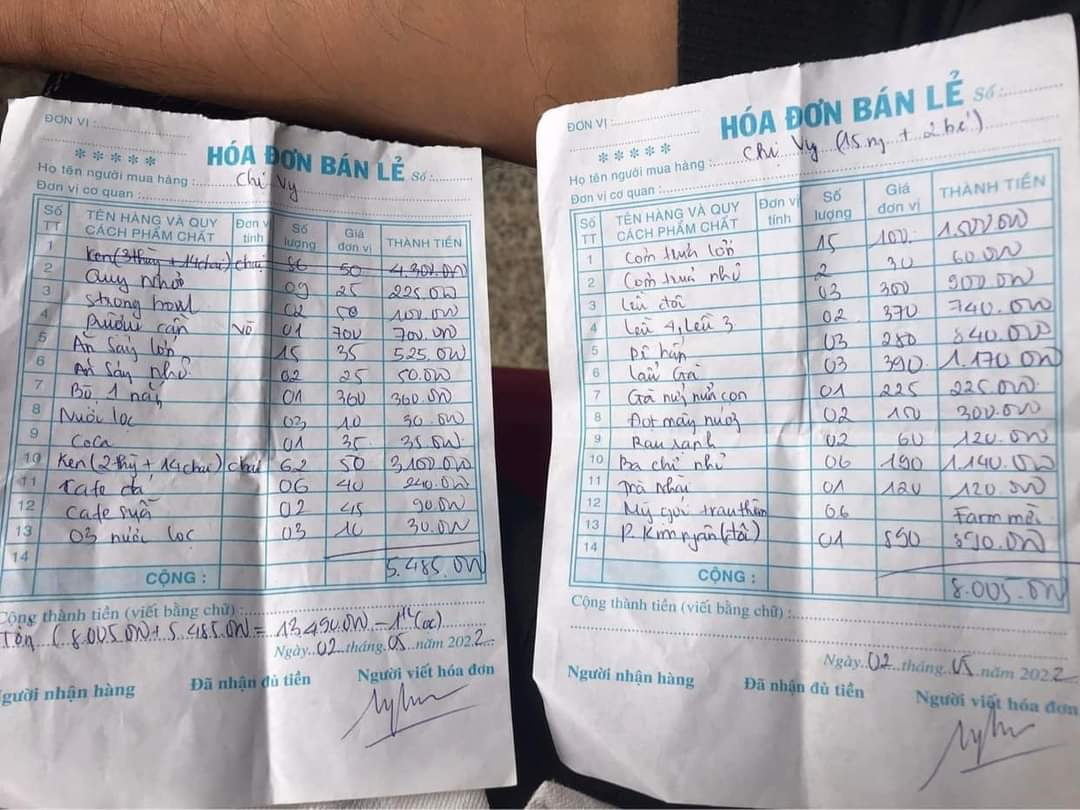 ĐƠN VỊ :
* * * * *
HÓA ĐƠN BÁN LẺ Số :
Họ tên người mua hàng : Chị Vy
Đơn vị cơ quan :
Số TT TÊN HÀNG VÀ QUY CÁCH PHẨM CHẤT Đơn vị tính Số lượng Giá đơn vị THÀNH TIỀN
1 Ken (3 thùng + 14 chai) chai 86 50 4.300.000
2 09 25 225.000
3 Strong bowl 02 50 100.000
4 Rượu cần Vò 01 700 700.000
5 Ăn sáng lớn 15 35 525.000
6 Ăn sáng nhỏ 02 25 50.000
7 Bò 1 nắng 01 360 360.000
8 Nước lọc 03 10 30.000
9 Coca 01 35 35.000
10 Ken (2 thg + 14 chai) chai 62 50 3.100.000
11 Cafe đá 06 40 240.000
12 Cafe sữa 02 45 90.000
13 03 nước lọc 03 10 30.000
14
CỘNG : 5.485.000
Cộng thành tiền (viết bằng chữ) :
(8.005.000 + 5.485.000 = 13.490.000
Ngày 02 tháng 05 năm 2022
Người nhận hàng Đã nhận đủ tiền Người viết hóa đơn
ĐƠN VỊ :
* * * * *
HÓA ĐƠN BÁN LẺ Số :
Họ tên người mua hàng : Chị Vy (15 ng + 2 bé)
Đơn vị cơ quan :
Số TT TÊN HÀNG VÀ QUY CÁCH PHẨM CHẤT Đơn vị tính Số lượng Giá đơn vị THÀNH TIỀN
1 Cơm trưa lớn 15 100 1.500.000
2 Cơm trưa nhỏ 2 30 60.000
3 Lều đôi 03 300 900.000
4 Lều 4, Lều 3 02 370 740.000
5 03 280 840.000
6 Lẩu Gà 03 390 1.170.000
7 Gà nướng nửa con 01 225 225.000
8 Đọt mây nướng 02 150 300.000
9 Rau sạch 02 60 120.000
10 Ba chỉ nhỏ 06 190 1.140.000
11 Trà Nhài 01 120 120.000
12 Mỳ gói trau thêm 06 Farm mời
13 R. Kim ngân (tôi) 01 890 890.000
14
CỘNG : 8.005.000
Cộng thành tiền (viết bằng chữ) :
Ngày 02 tháng 05 năm 2022
Người nhận hàng Đã nhận đủ tiền Người viết hóa đơn